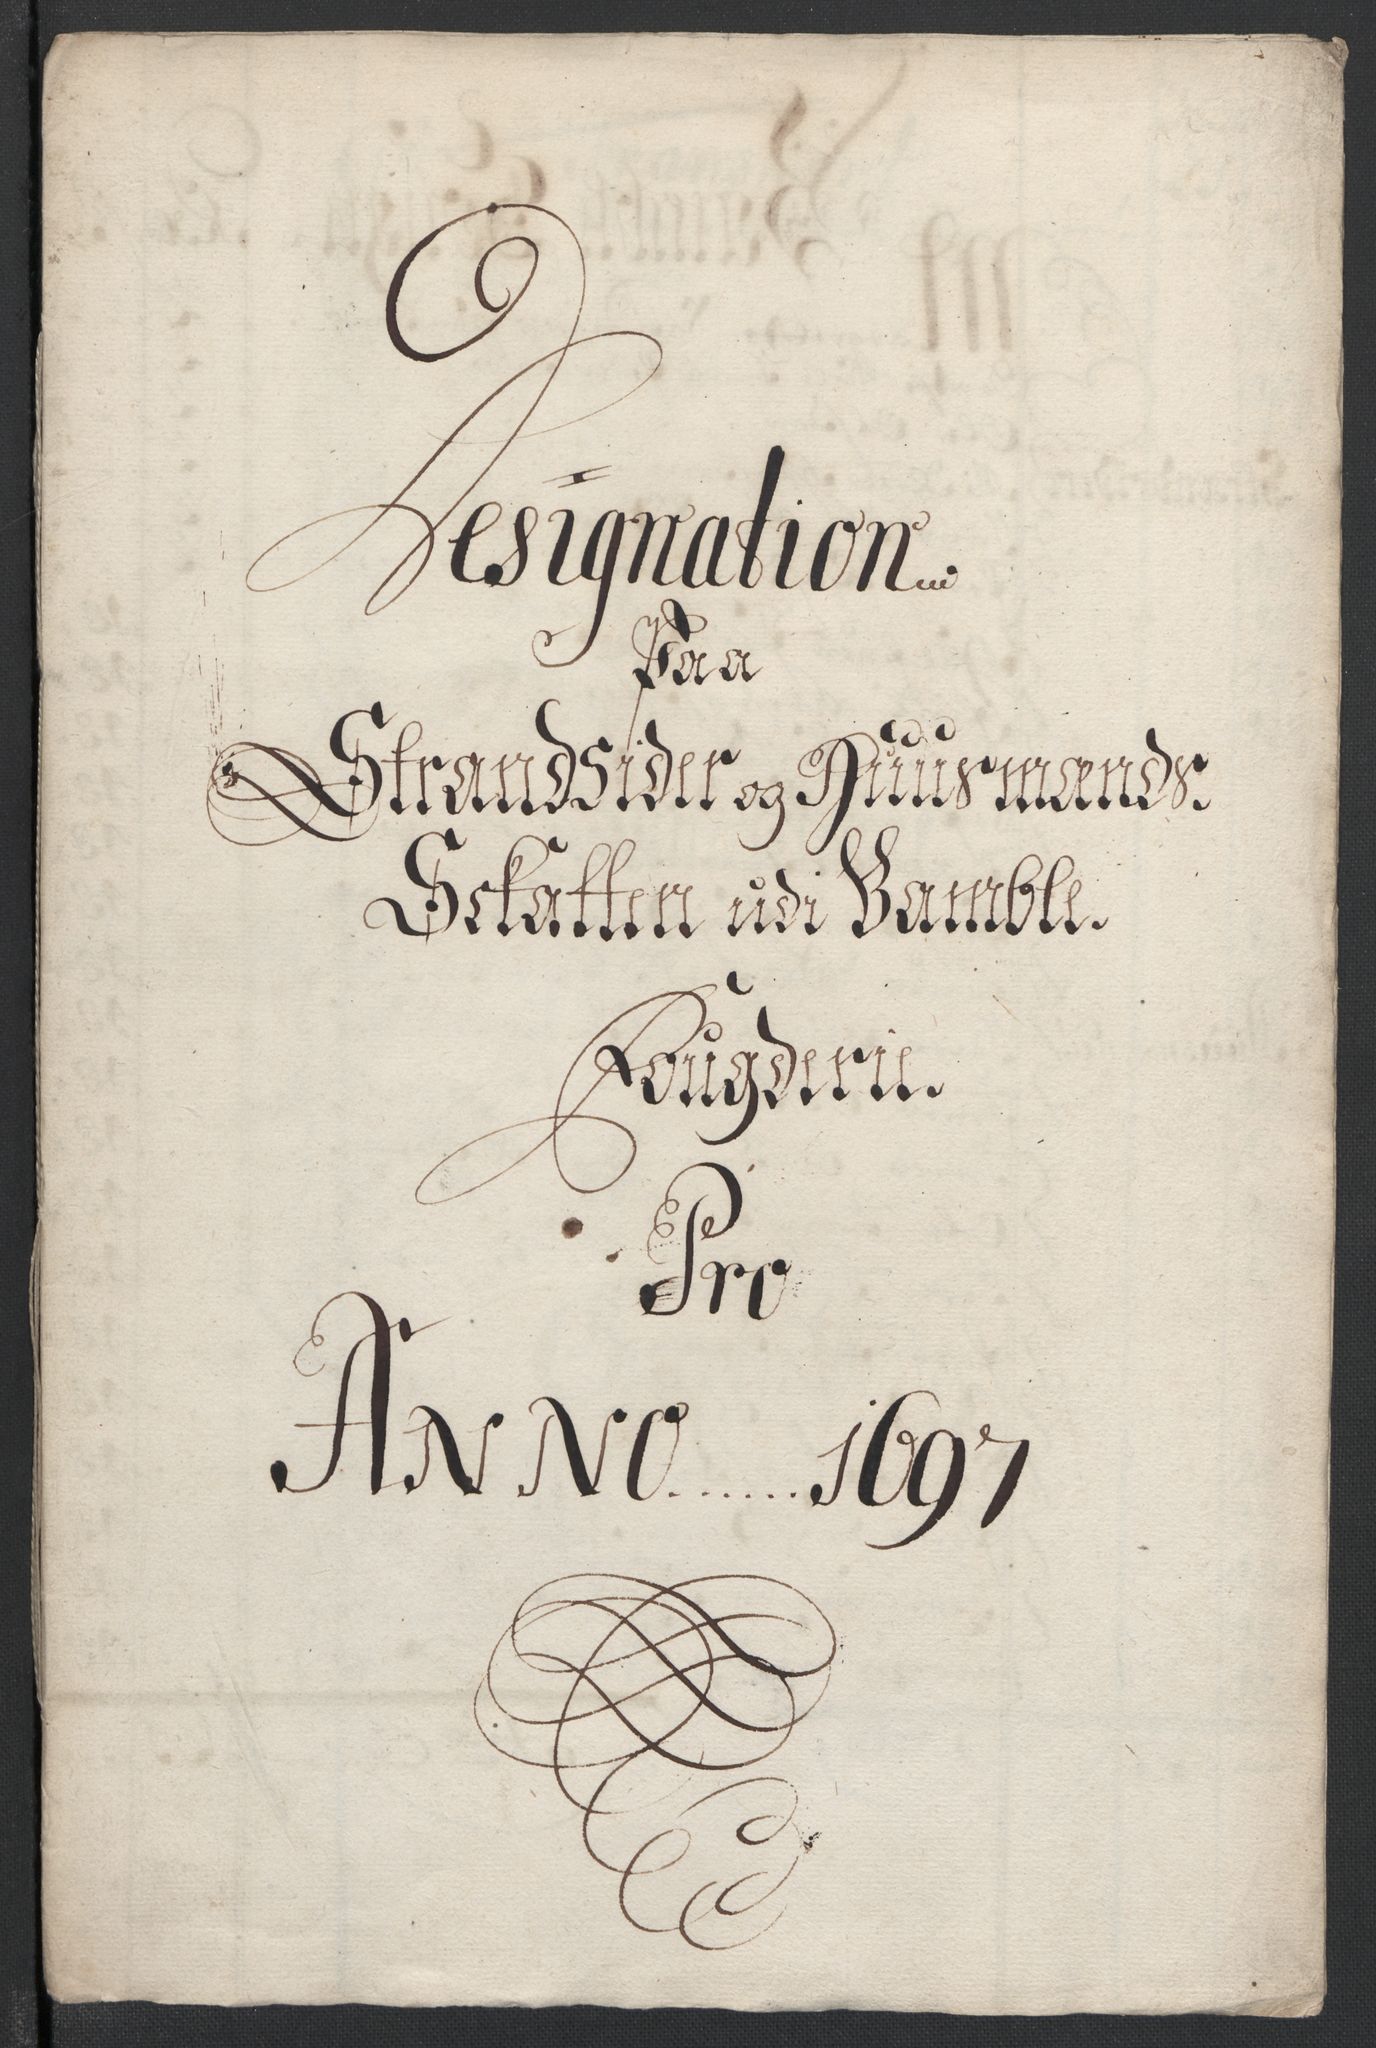 Designation
Paa
Strandsider og Huusmands
Schatten udi Bamble.
Fougderie.
Pro
ANNO......1697